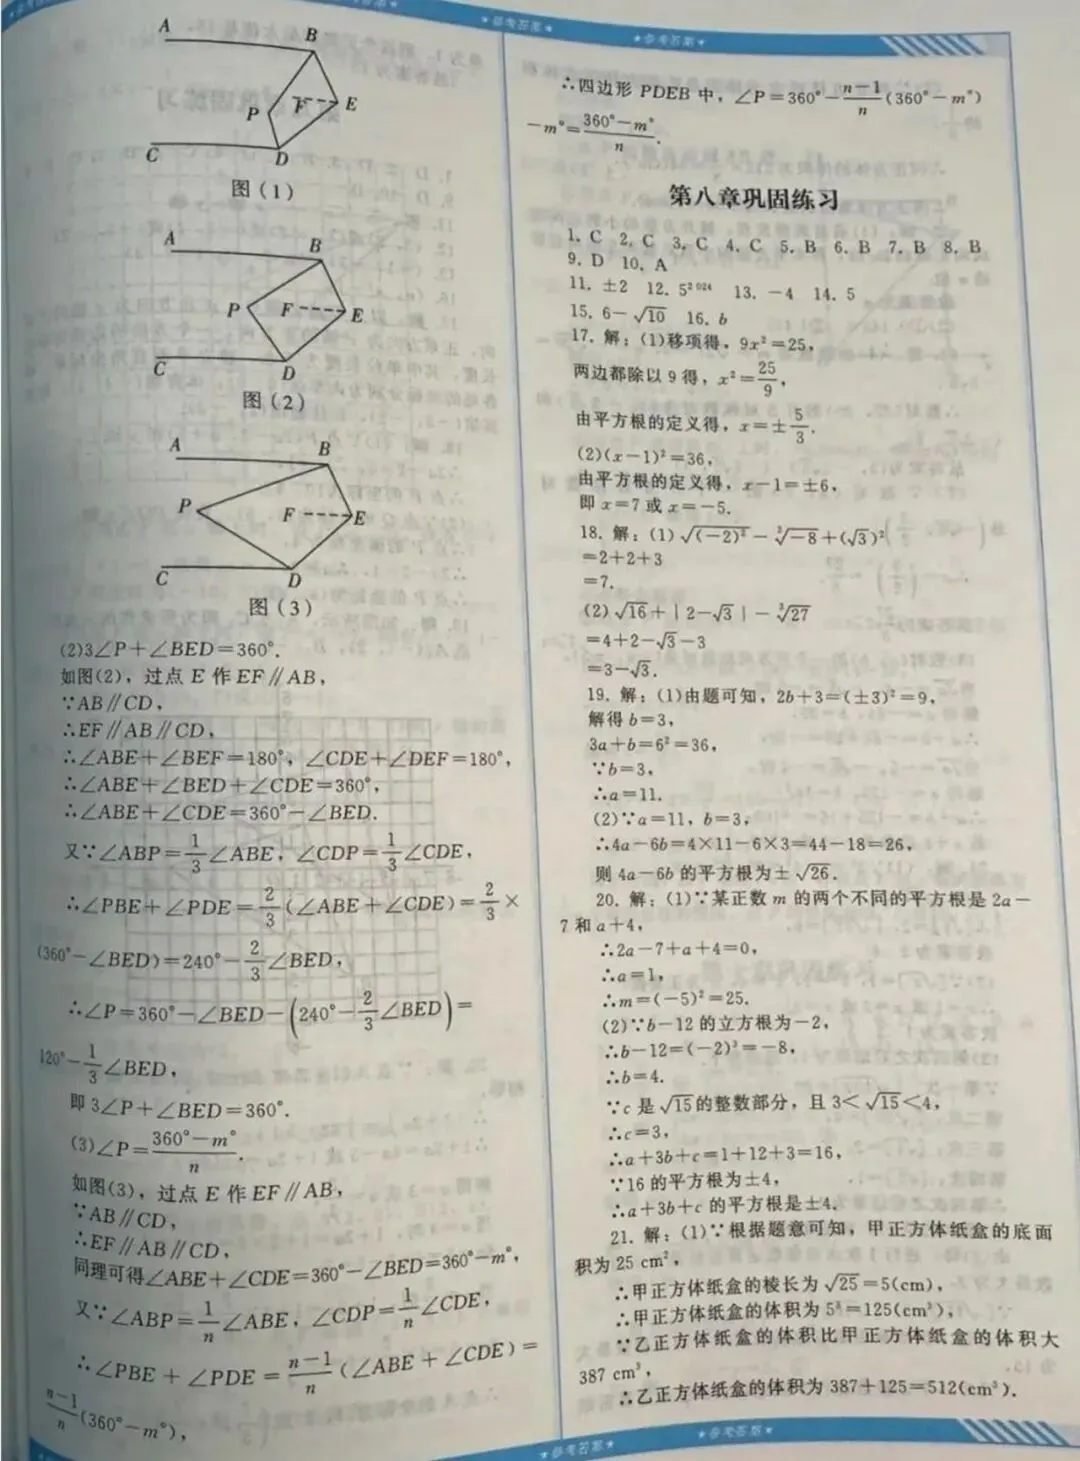 ★参考答案★
★参考答案★
A
B
P
F
E
C
D
图(1)
A
B
P
F
E
C
D
图(2)
A
B
P
F
E
C
D
图(3)
(2)3∠P+∠BED=360°.
如图(2),过点 E 作 EF∥AB,
∵AB∥CD,
∴EF∥AB∥CD,
∴∠ABE+∠BEF=180°,∠CDE+∠DEF=180°,
∴∠ABE+∠BED+∠CDE=360°,
∴∠ABE+∠CDE=360°-∠BED.
又∵∠ABP=1/3∠ABE,∠CDP=1/3∠CDE,
∴∠PBE+∠PDE=2/3(∠ABE+∠CDE)=2/3×
(360°-∠BED)=240°-2/3∠BED,
∴∠P=360°-∠BED-(240°-2/3∠BED)=
120°-1/3∠BED,
即 3∠P+∠BED=360°.
(3)∠P=(360°-m°)/n.
如图(3),过点 E 作 EF∥AB,
∵AB∥CD,
∴EF∥AB∥CD,
同理可得∠ABE+∠CDE=360°-∠BED=360°-m°,
又∵∠ABP=1/n∠ABE,∠CDP=1/n∠CDE,
∴∠PBE+∠PDE=(n-1)/n(∠ABE+∠CDE)=
(n-1)/n(360°-m°),
∴四边形 PDEB 中,∠P=360°-(n-1)/n(360°-m°)
-m°=(360°-m°)/n.
第八章巩固练习
1. C 2. C 3. C 4. C 5. B 6. B 7. B 8. B
9. D 10. A
11. ±2 12. 5²⁰²⁴ 13. -4 14. 5
15. 6-√10 16. b
17. 解:(1)移项得,9x²=25,
两边都除以 9 得,x²=25/9,
由平方根的定义得,x=±5/3.
(2)(x-1)²=36,
由平方根的定义得,x-1=±6,
即 x=7 或 x=-5.
18. 解:(1)√(-2)²-³√-8+(√3)²
=2+2+3
=7.
(2)√16+|2-√3|-³√27
=4+2-√3-3
=3-√3.
19. 解:(1)由题可知,2b+3=(±3)²=9,
解得 b=3,
3a+b=6²=36,
∵b=3,
∴a=11.
(2)∵a=11,b=3,
∴4a-6b=4×11-6×3=44-18=26,
则 4a-6b 的平方根为±√26.
20. 解:(1)∵某正数 m 的两个不同的平方根是 2a-
7 和 a+4,
∴2a-7+a+4=0,
∴a=1,
∴m=(-5)²=25.
(2)∵b-12 的立方根为-2,
∴b-12=(-2)³=-8,
∴b=4.
∵c 是√15的整数部分,且 3<√15<4,
∴c=3,
∴a+3b+c=1+12+3=16,
∵16 的平方根为±4,
∴a+3b+c 的平方根是±4.
21. 解:(1)∵根据题意可知,甲正方体纸盒的底面
积为 25 cm²,
∴甲正方体纸盒的棱长为√25=5(cm),
∴甲正方体纸盒的体积为 5³=125(cm³),
∵乙正方体纸盒的体积比甲正方体纸盒的体积大
387 cm³,
∴乙正方体纸盒的体积为 387+125=512(cm³).
★参考答案★
★参考答案★